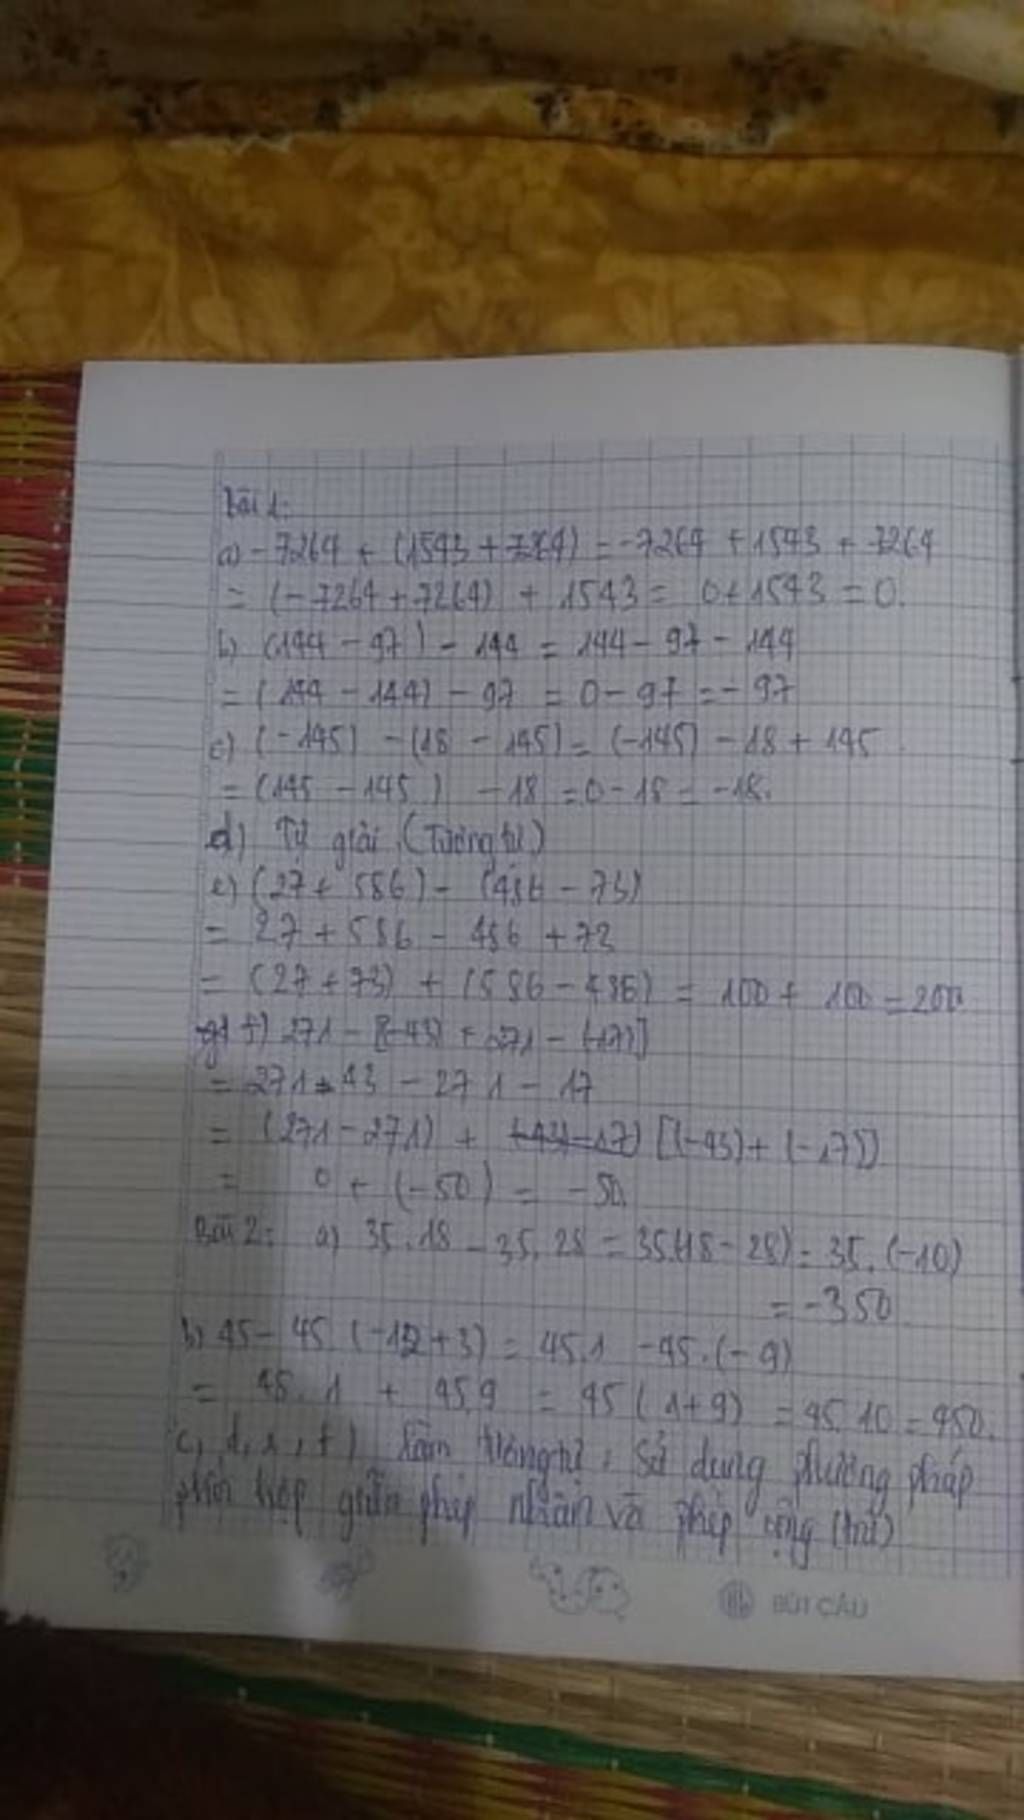 Bài 1:
a) -7264 + (1543 + 7264) = -7264 + 1543 + 7264
= (-7264 + 7264) + 1543 = 0 + 1543 = 0.
b) (144 - 97) - 144 = 144 - 97 - 144
= (144 - 144) - 97 = 0 - 97 = - 97
c) (-145) - (18 - 145) = (-145) - 18 + 145
= (145 - 145) - 18 = 0 - 18 = -18.
d) Tự giải (Tương tự)
e) (27 + 586) - (486 - 73)
= 27 + 586 - 486 + 73
= (27 + 73) + (586 - 486) = 100 + 100 = 200
f) 271 - [(-43) + 271 - (-17)]
= 271 43 - 271 - 17
= (271 - 271) + [(-43) + (-17)]
= 0 + (-50) = -50.
Bài 2: a) 35.18 - 35.28 = 35.(18 - 28) = 35.(-10)
= -350
b) 45 - 45.(-12 + 3) = 45.1 - 45.(-9)
= 45.1 + 45.9 = 45(1+9) = 45.10 = 450.
c, d, e, f) Làm tương tự, sử dụng phương pháp
phối hợp giữa phép nhân và phép cộng (trừ)
BÚT CÂU